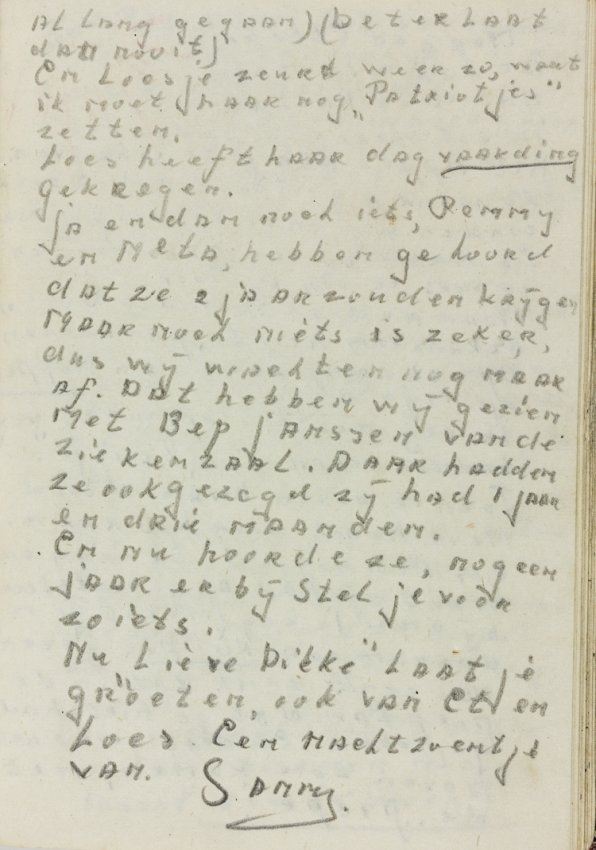 al lang gegaan) (beter laat
dan nooit)
En Loesje zeurd weer zo, want
ik moet haar nog „Patriotjes"
zetten.
Loes heeft haar dagvaarding
gekregen.
ja en dan noch iets, Remmy
en Meta, hebben gehoord
dat ze 2 jaar zouden krijgen
Maar noch niets is zeker,
dus wij wachten nog maar
af. Dat hebben wij gezien
Met Bep Janssen van de
ziekenzaal. Daar hadden
ze ook gezegd zij had 1 jaar
en drie maanden.
En nu hoorde ze, nog een
jaar er bij Stel je voor
zoiets.
Nu Lieve Dikke" Laat je
groeten, ook van Et en
Loes. Een nachtzoentje
van.
Sammy.